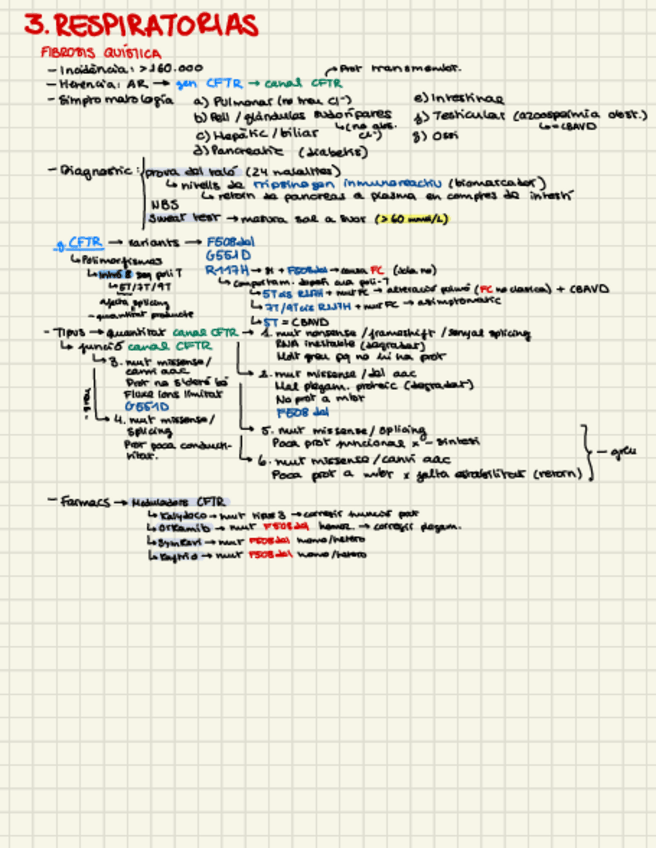 3. RESPIRATORIAS
FIBROSIS QUÍSTICA
- Incidència: >160.000
- Herencia: AR → gen CFTR → canal CFTR → Prot transmembr.
- Simptomatologia a) Pulmonar (no treu Cl⁻) e) Intestinal
b) Pell / glándulas sudorípares f) Testicular (azoospèrmia obst.)
↳ (no abs. Cl⁻) ↳ = CBAVD
c) Hepàtic / biliar g) Ossi
d) Pancreatic (diabetis)
- Diagnostic: prova del taló (24 malalties)
↳ nivells de tripsinogen inmunoreactiu (biomarcador)
↳ retorn de pancreas a plasma en comptes de intestí
NBS
Sweat test → mesura sal a suor (>60 mmol/L)
g. CFTR → variants → F508del
G551D
↳ Polimorfismes
R117H → si + F508del → causa FC (sola no)
↳ intró 8 seq poli T
↳ comportam. depèn seq poli-T
↳ 5T/7T/9T
↳ 5T cis R117H + mut FC → alteració pulmó (FC no clasica) + CBAVD
afecta splicing
↳ 7T/9T cis R117H + mut FC → asimptomatic
- quantitat producte
↳ 5T = CBAVD
- Tipus → quantitat canal CFTR → 1. mut nonsense / frameshift / senyal splicing
↳ funció canal CFTR
RNA inestable (degradar)
Molt greu pq no hi ha prot
↳ 3. mut missense / canvi aac
Prot no s'obre bé
Fluxe ions limitat
G551D
↳ 2. mut missense / del aac
Mal plegam. proteic (degradar)
No prot a mbr
F508 del
- greu
↳ 4. mut missense / splicing
Prot poca conductivitat.
↳ 5. mut missense / splicing
Poca prot funcional x - síntesi
↳ 6. mut missense / canvi aac
Poca prot a mbr x falta estabilitat (retorn)
- greu
- Farmacs → Moduladors CFTR
↳ Kalydeco → mut tipus 3 → corregir funció prot
↳ Orkambi → mut F508del homoz. → corregir plegam.
↳ Symkevi → mut F508del homo/hetero
↳ Kaftrio → mut F508del homo/hetero